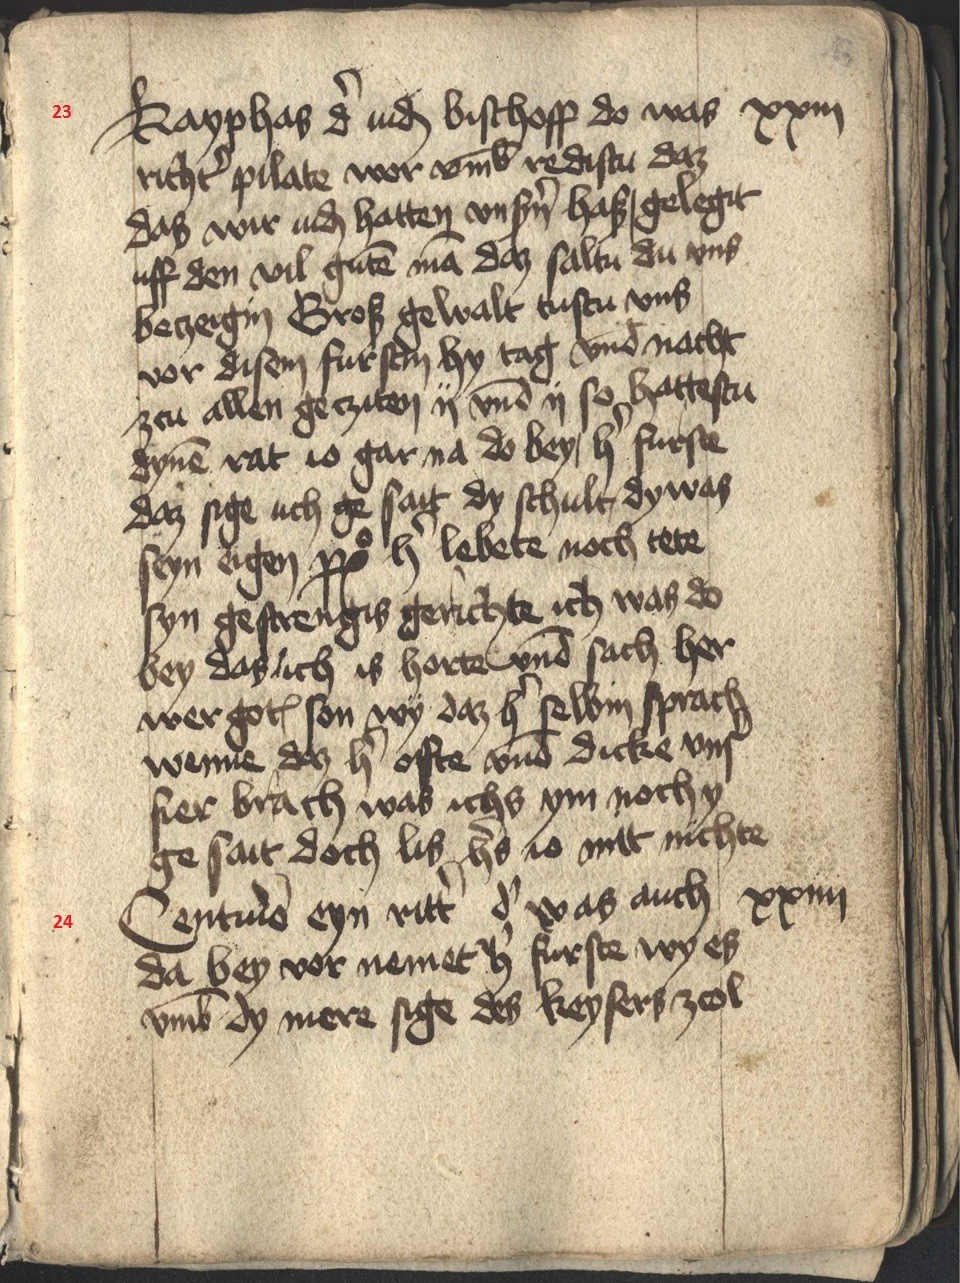 23 Kayphas d' iudn bischoff do was xxiii
richt' pilate wor vmb redistu daz
das wir iudn hatten vnsyn haß gelegit
uff den vil gutē mā daz saltu du vns
betzeigin Groß gewalt tustu vns
vor disem furstin hy tag vnd nacht
zcu allen getziten ÿ vnd ÿ so hattestu
dynē rat io gar na do bey h' furste
daz sige uch ge sait dy schult dy was
seyn eigen h' lebete noch tete
syn gestrengis gerichte ich was do
bey das ich is horte vnd sach her
wer got son wy daz h' selbin sprach
wenne daz h' offte vnd dicke vns'
fier brach was ichs ym noch y
ge sait doch lis h's io mitt nichte
24 Centurio eyn ritt' d' was auch xxiiii
da bey vor nemet h' furste wy es
vmb dy mere sige des keysers zcol